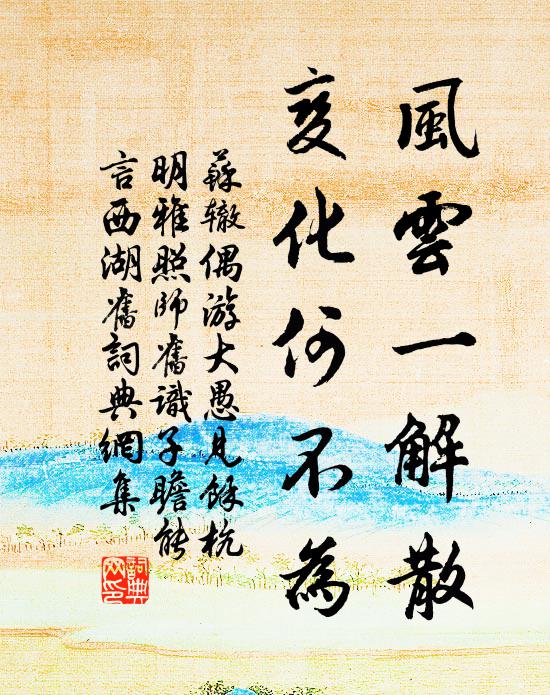 風雲一解散
變化何不為
蘇轍偶游大愚見餘杭
明雅照師舊識子瞻能
言西湖舊詞典網集
詞典
網印